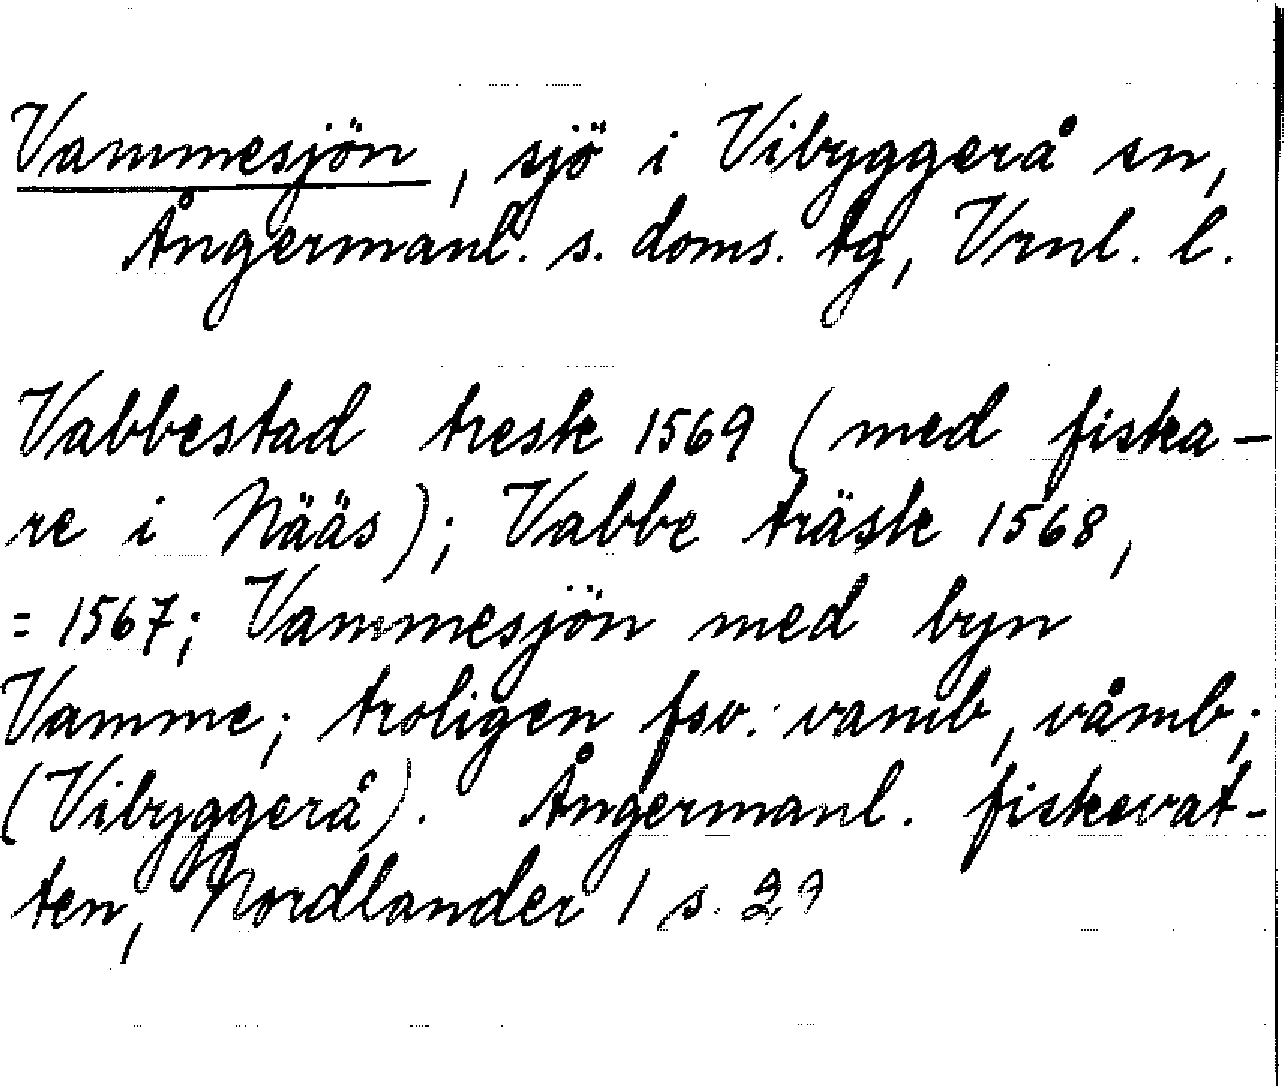 Vammesjön, sjö i Vibyggerå sn,
Ångermanl. s. doms. tg, Vrnl. l.
Vabbestad tresk 1569 (med fiska-
re i Nääs); Vabbe träsk 1568,
= 1567; Vammesjön med byn
Vamme; troligen fsv. vamb, våmb;
(Vibyggerå). Ångermanl. fiskevat-
ten, Nordlander 1 s. 29